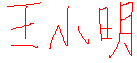 王小明